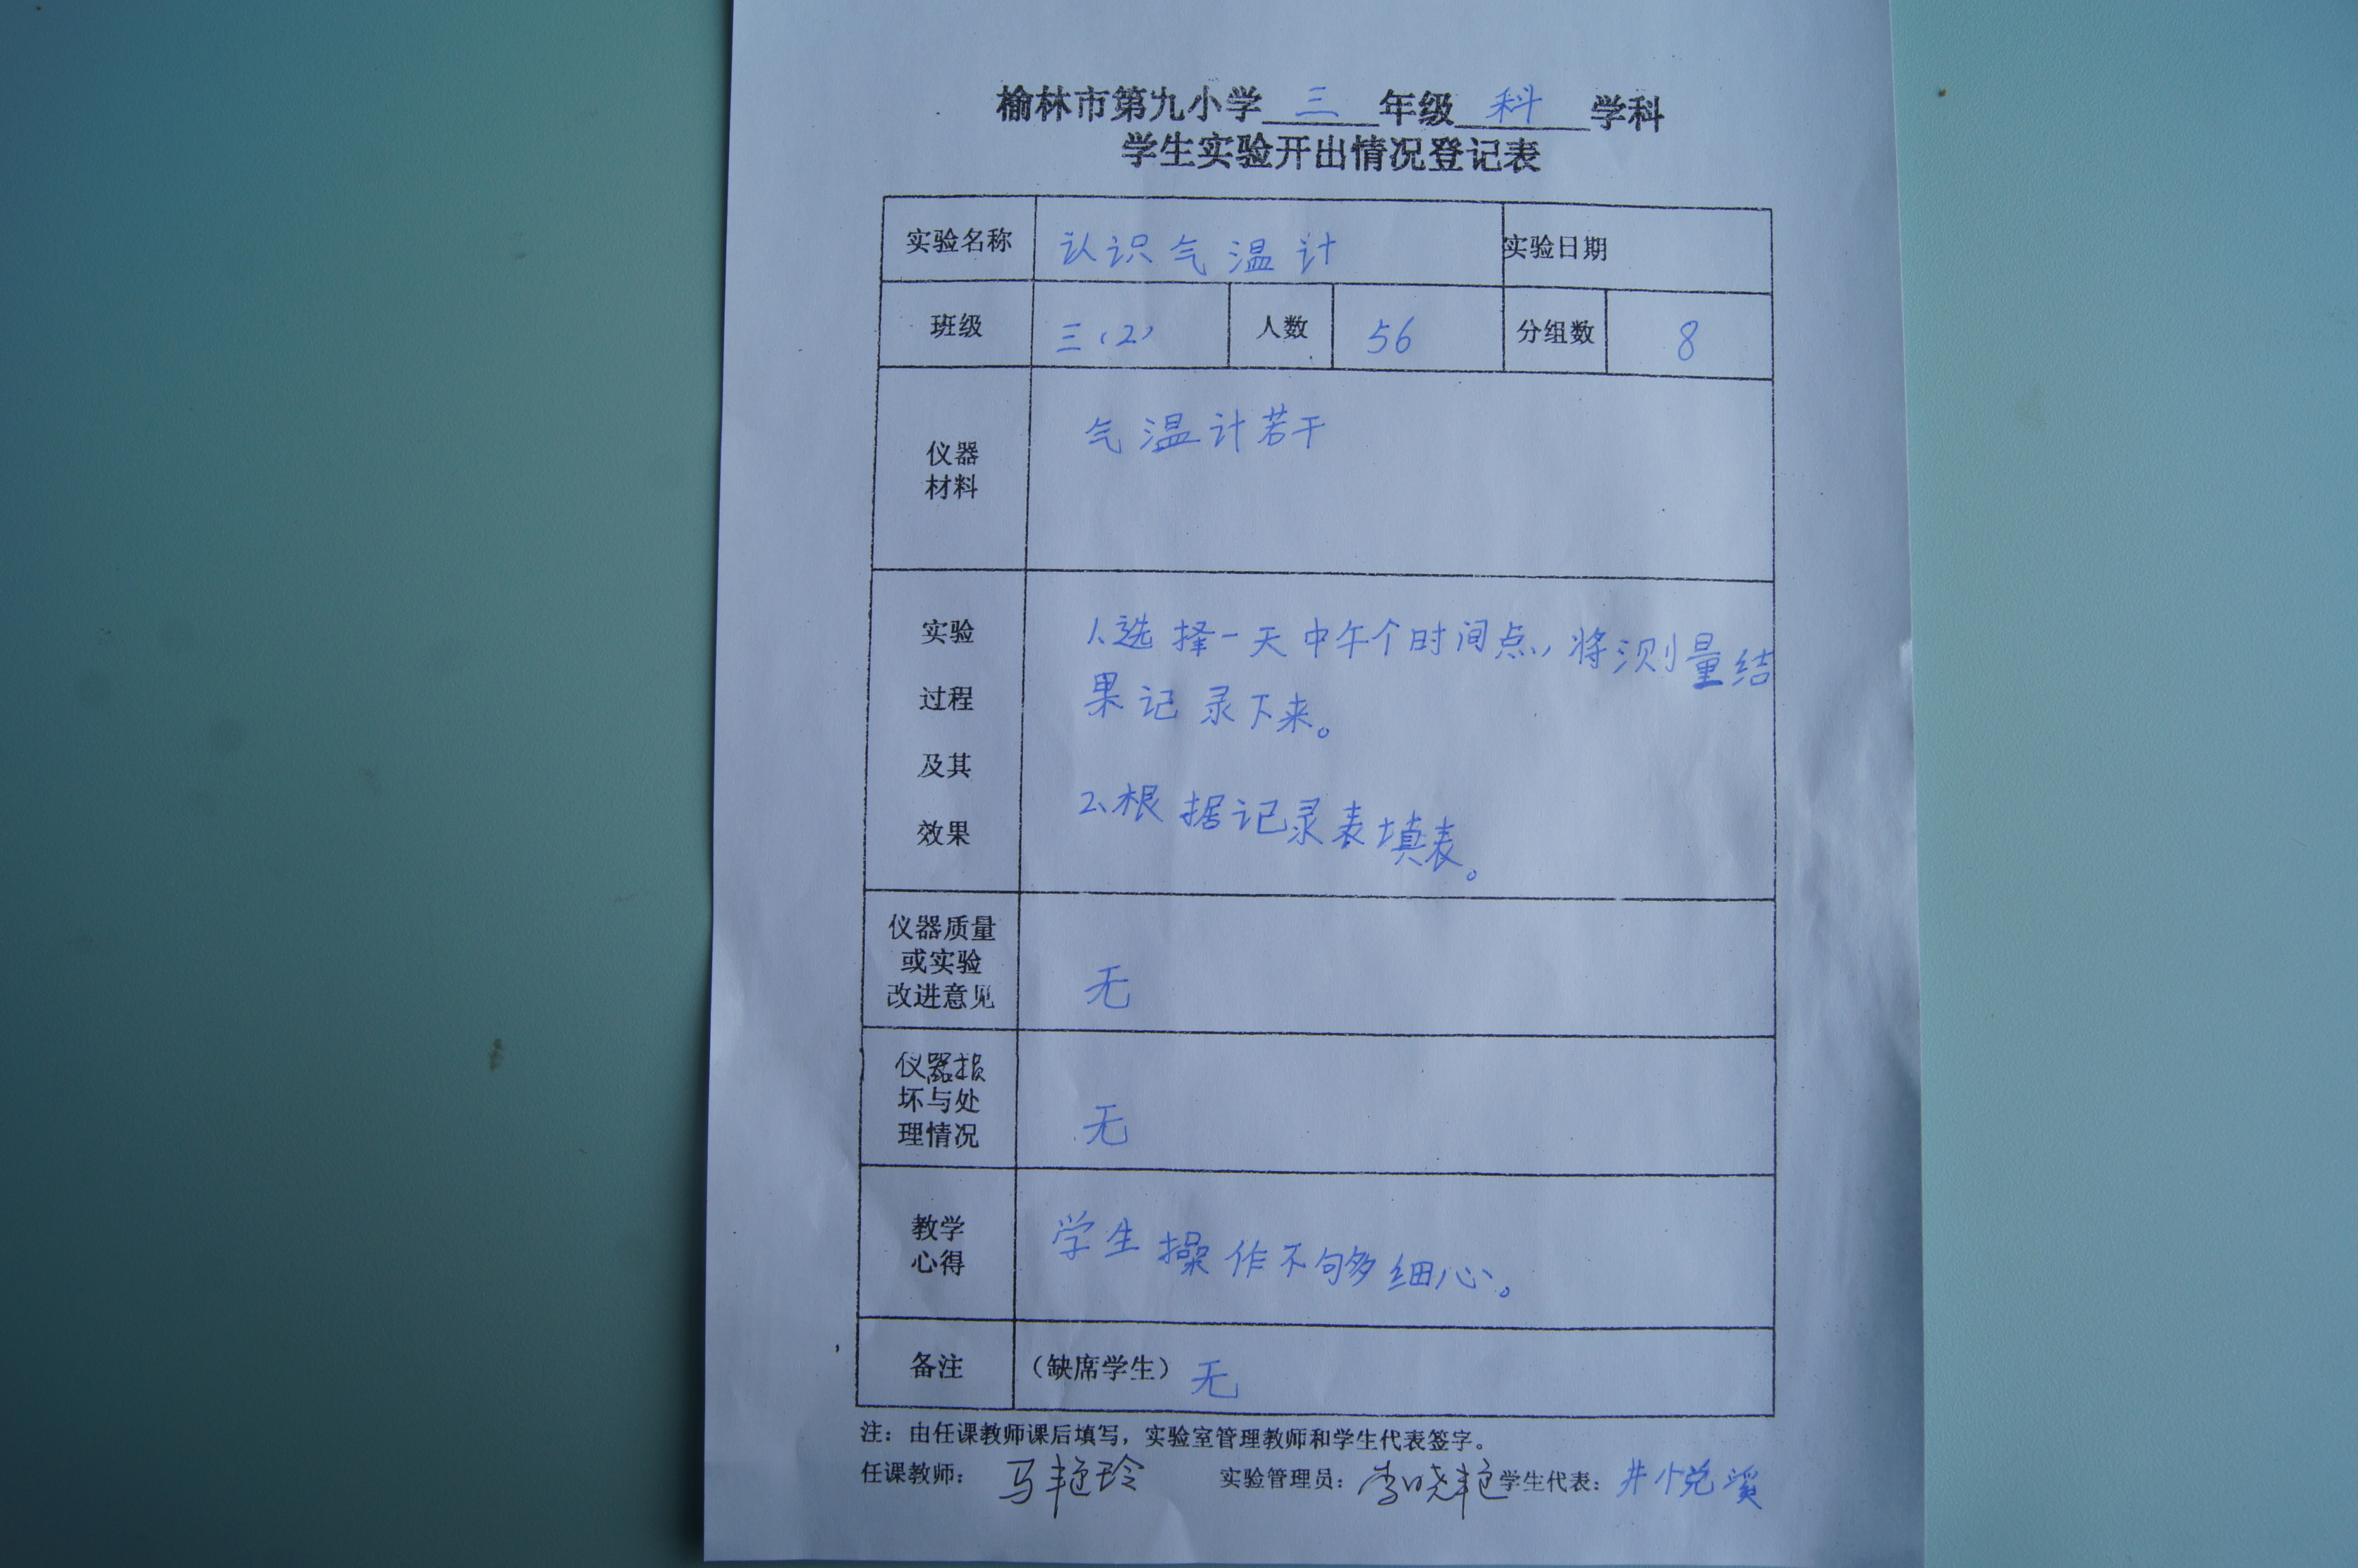 榆林市第九小学 三 年级 科 学科
学生实验开出情况登记表
实验名称 认识气温计 实验日期
班级 三(2) 人数 56 分组数 8
仪器
材料
气温计若干
实验
过程
及其
效果
1、选择一天中午个时间点,将测量结
果记录下来。
2、根据记录表填表。
仪器质量
或实验
改进意见
无
仪器损
坏与处
理情况
无
教学
心得
学生操作不够细心。
备注 (缺席学生) 无
注:由任课教师课后填写,实验室管理教师和学生代表签字。
任课教师: 马艳玲 实验管理员: 李晓艳 学生代表: 井悦溪